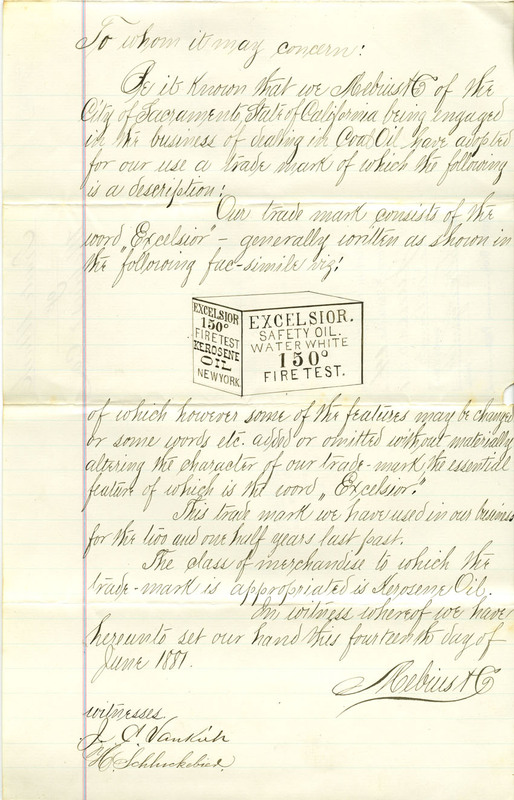 To whom it may concern:
Be it known that we Mebius & C of the
City of Sacramento, State of California being engaged
in the business of dealing in Coal Oil have adopted
for our use a trade mark of which the following
is a description:
Our trade mark consists of the
word "Excelsior" - generally written as shown in
the following fac-simile viz:
EXCELSIOR
150°
FIRE TEST
KEROSENE
OIL
NEW YORK
EXCELSIOR.
SAFETY OIL.
WATER WHITE
150°
FIRE TEST.
of which however some of the features may be changed
or some words etc. added or omitted without materially
altering the character of our trade-mark, the essential
feature of which is the word „Excelsior."
This trade mark we have used in our business
for the two and one half years last past.
The class of merchandise to which the
trade-mark is appropriated is Kerosene Oil.
In witness whereof we have
hereunto set our hand this fourteenth day of
June 1881.
Mebius & C
witnesses
J. C.
H. Schluckebier.